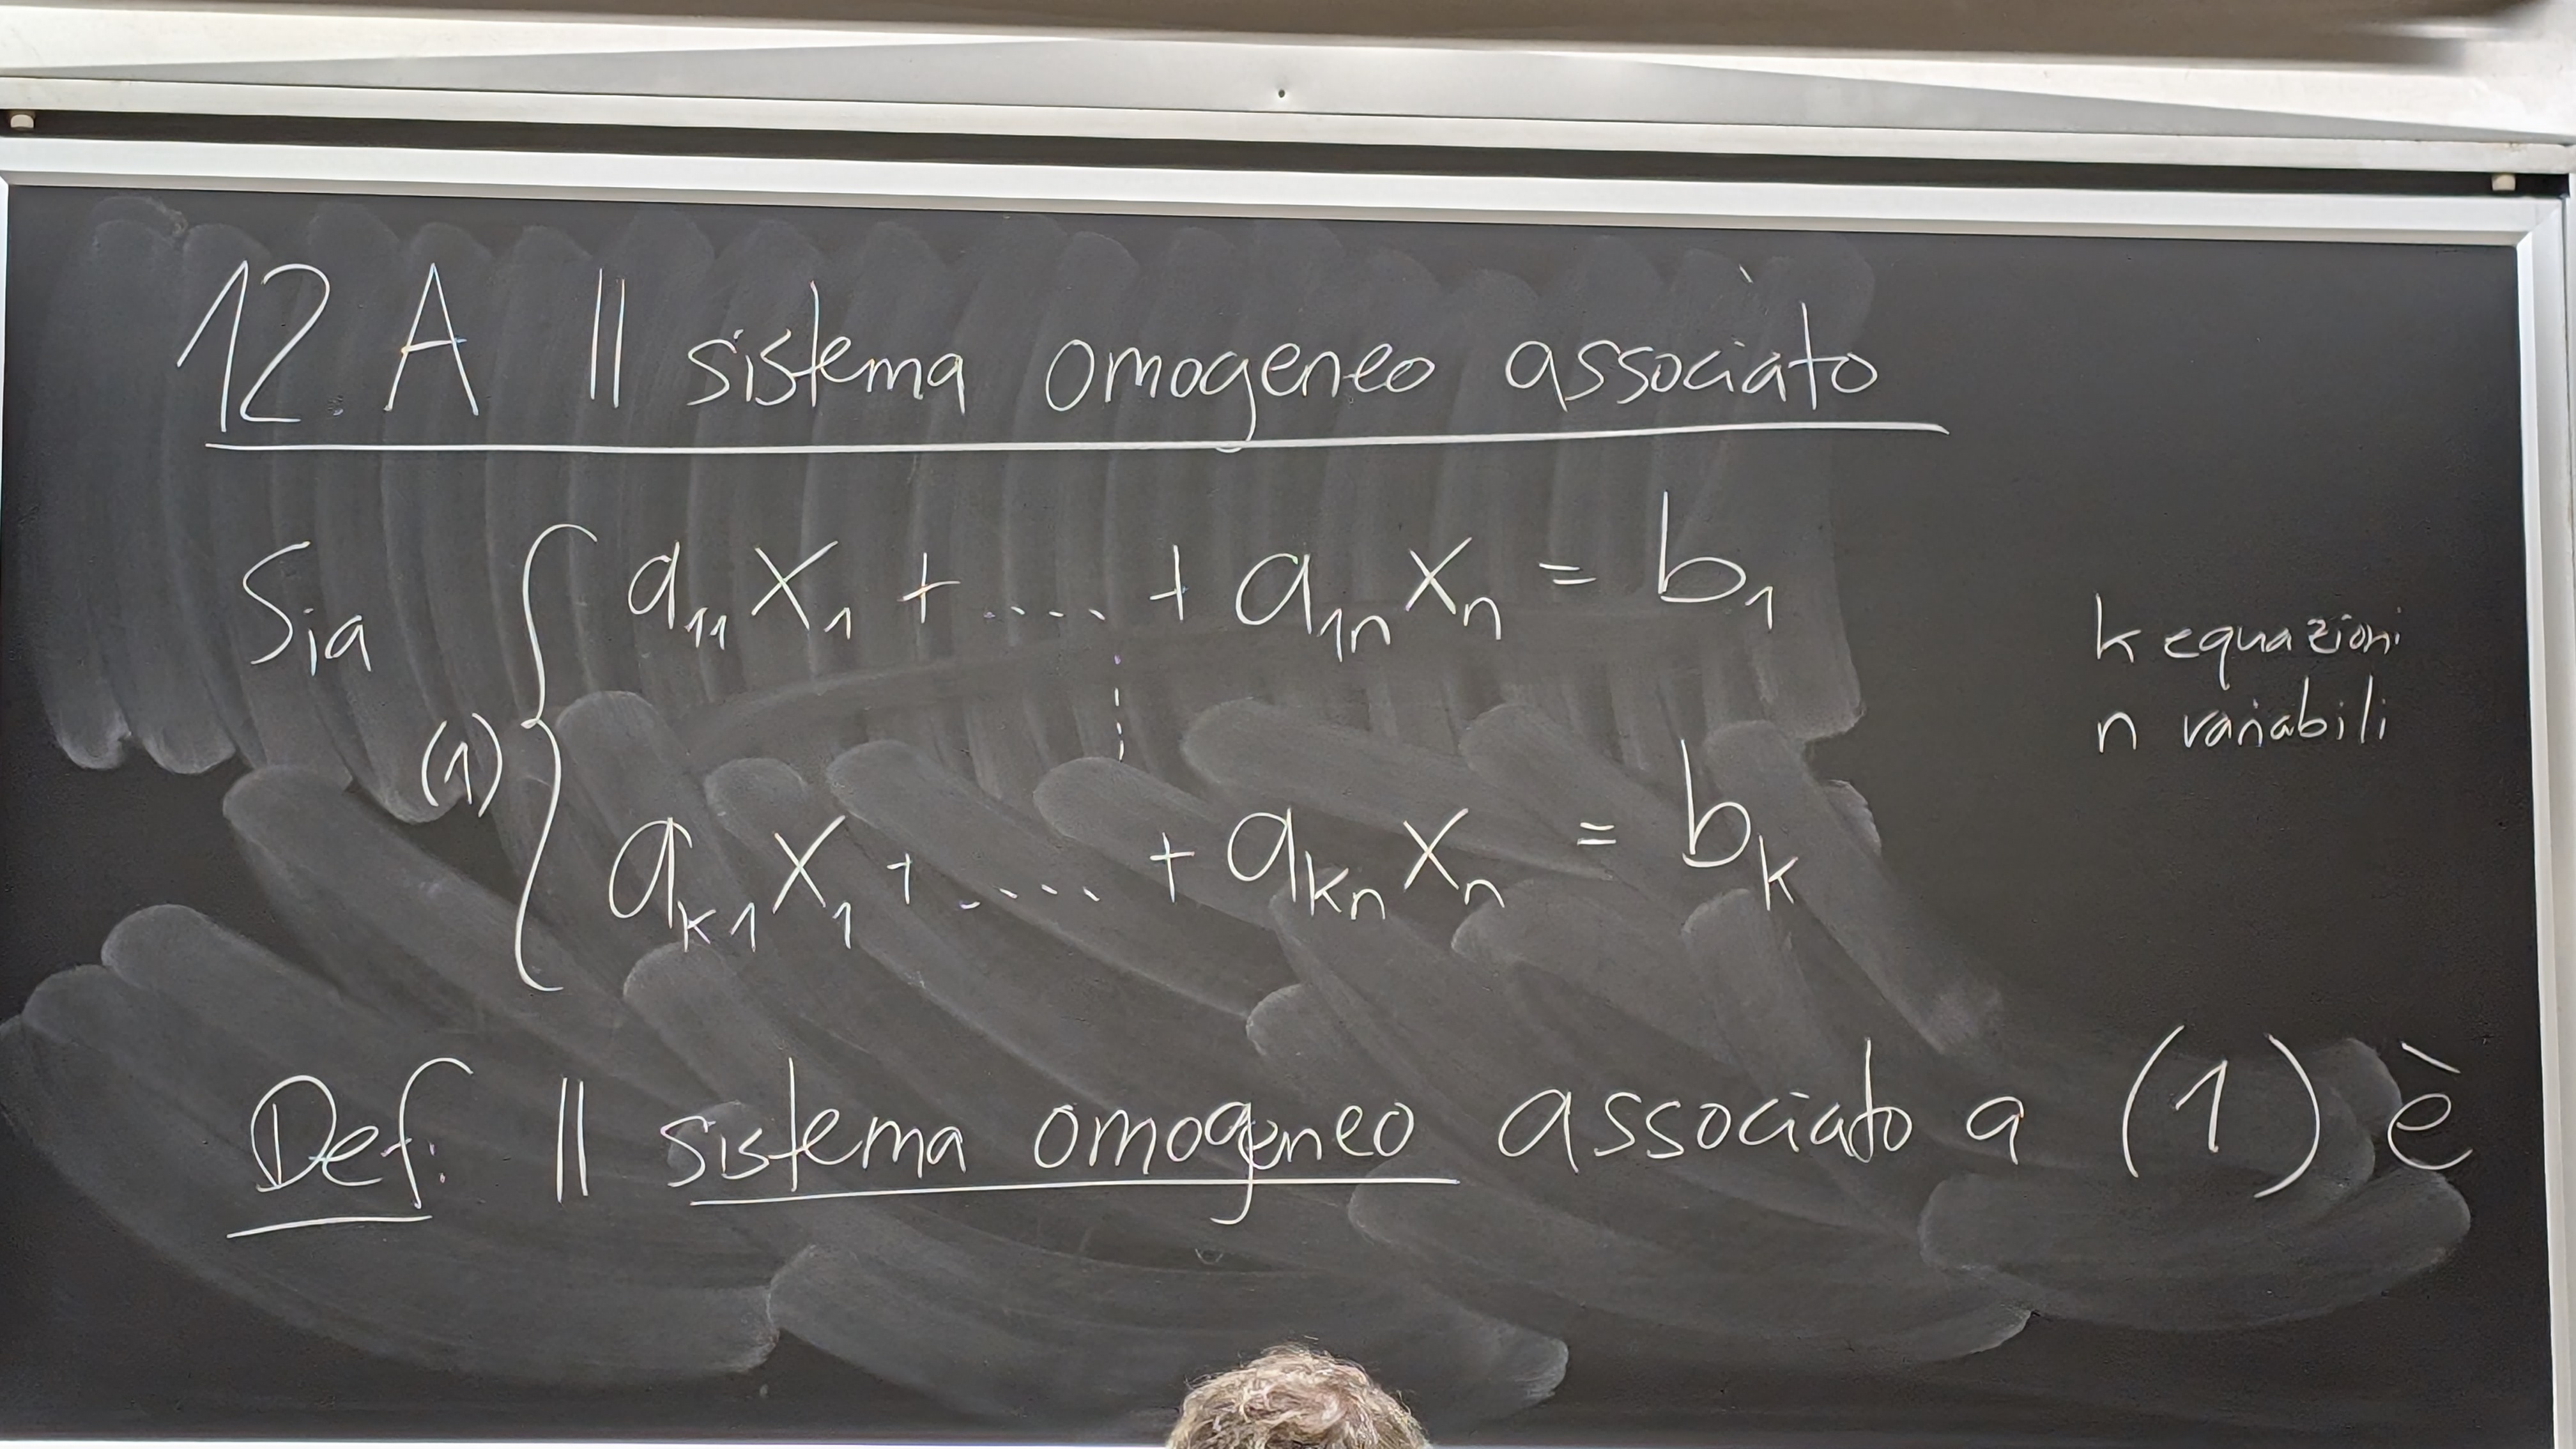 12. A Il sistema omogeneo associato
Sia
(1) { a₁₁x₁ + .... + a₁ₙxₙ = b₁
⋮
aₖ₁x₁ + .... + aₖₙxₙ = bₖ
k equazioni
n variabili
Def: Il sistema omogeneo associato a (1) è